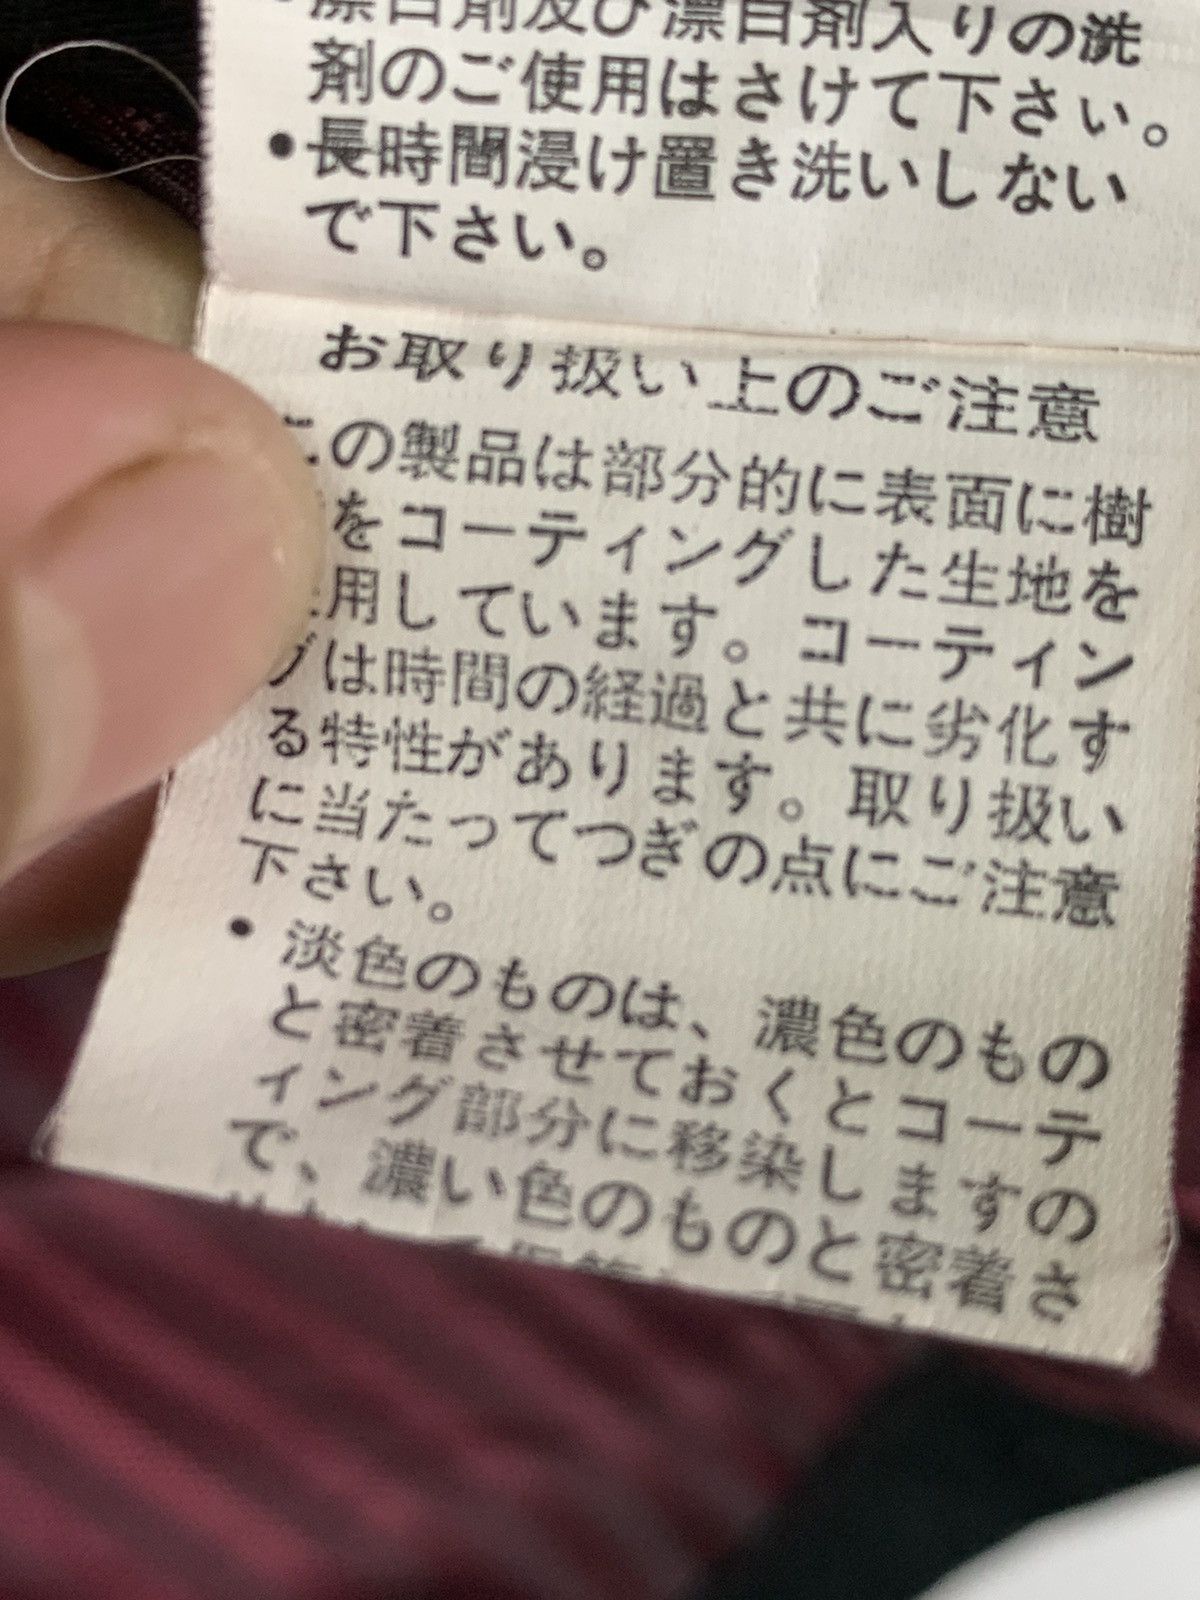 ・漂白剤及び漂白剤入りの洗
剤のご使用はさけて下さい。
●長時間浸け置き洗いしない
で下さい。
お取り扱い上のご注意
この製品は部分的に表面に樹
をコーティングした生地を
用しています。コーティン
グは時間の経過と共に劣化す
る特性があります。取り扱い
に当たってつぎの点にご注意
下さい。
●淡色のものは、濃色のもの
と密着させておくとコーテ
ィング部分に移染しますの
で、濃い色のものと密着さ